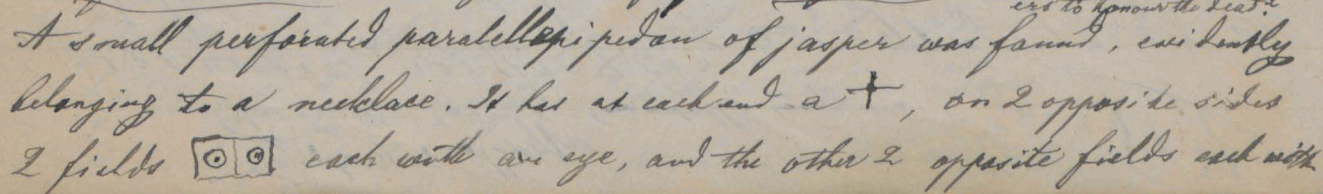 ers to honour the dead?
A small perforated paralellepipedon of jasper was found, evidently
belonging to a necklace. It has at each end a +, on 2 opposite sides
2 fields each with an eye, and the other 2 opposite fields each with